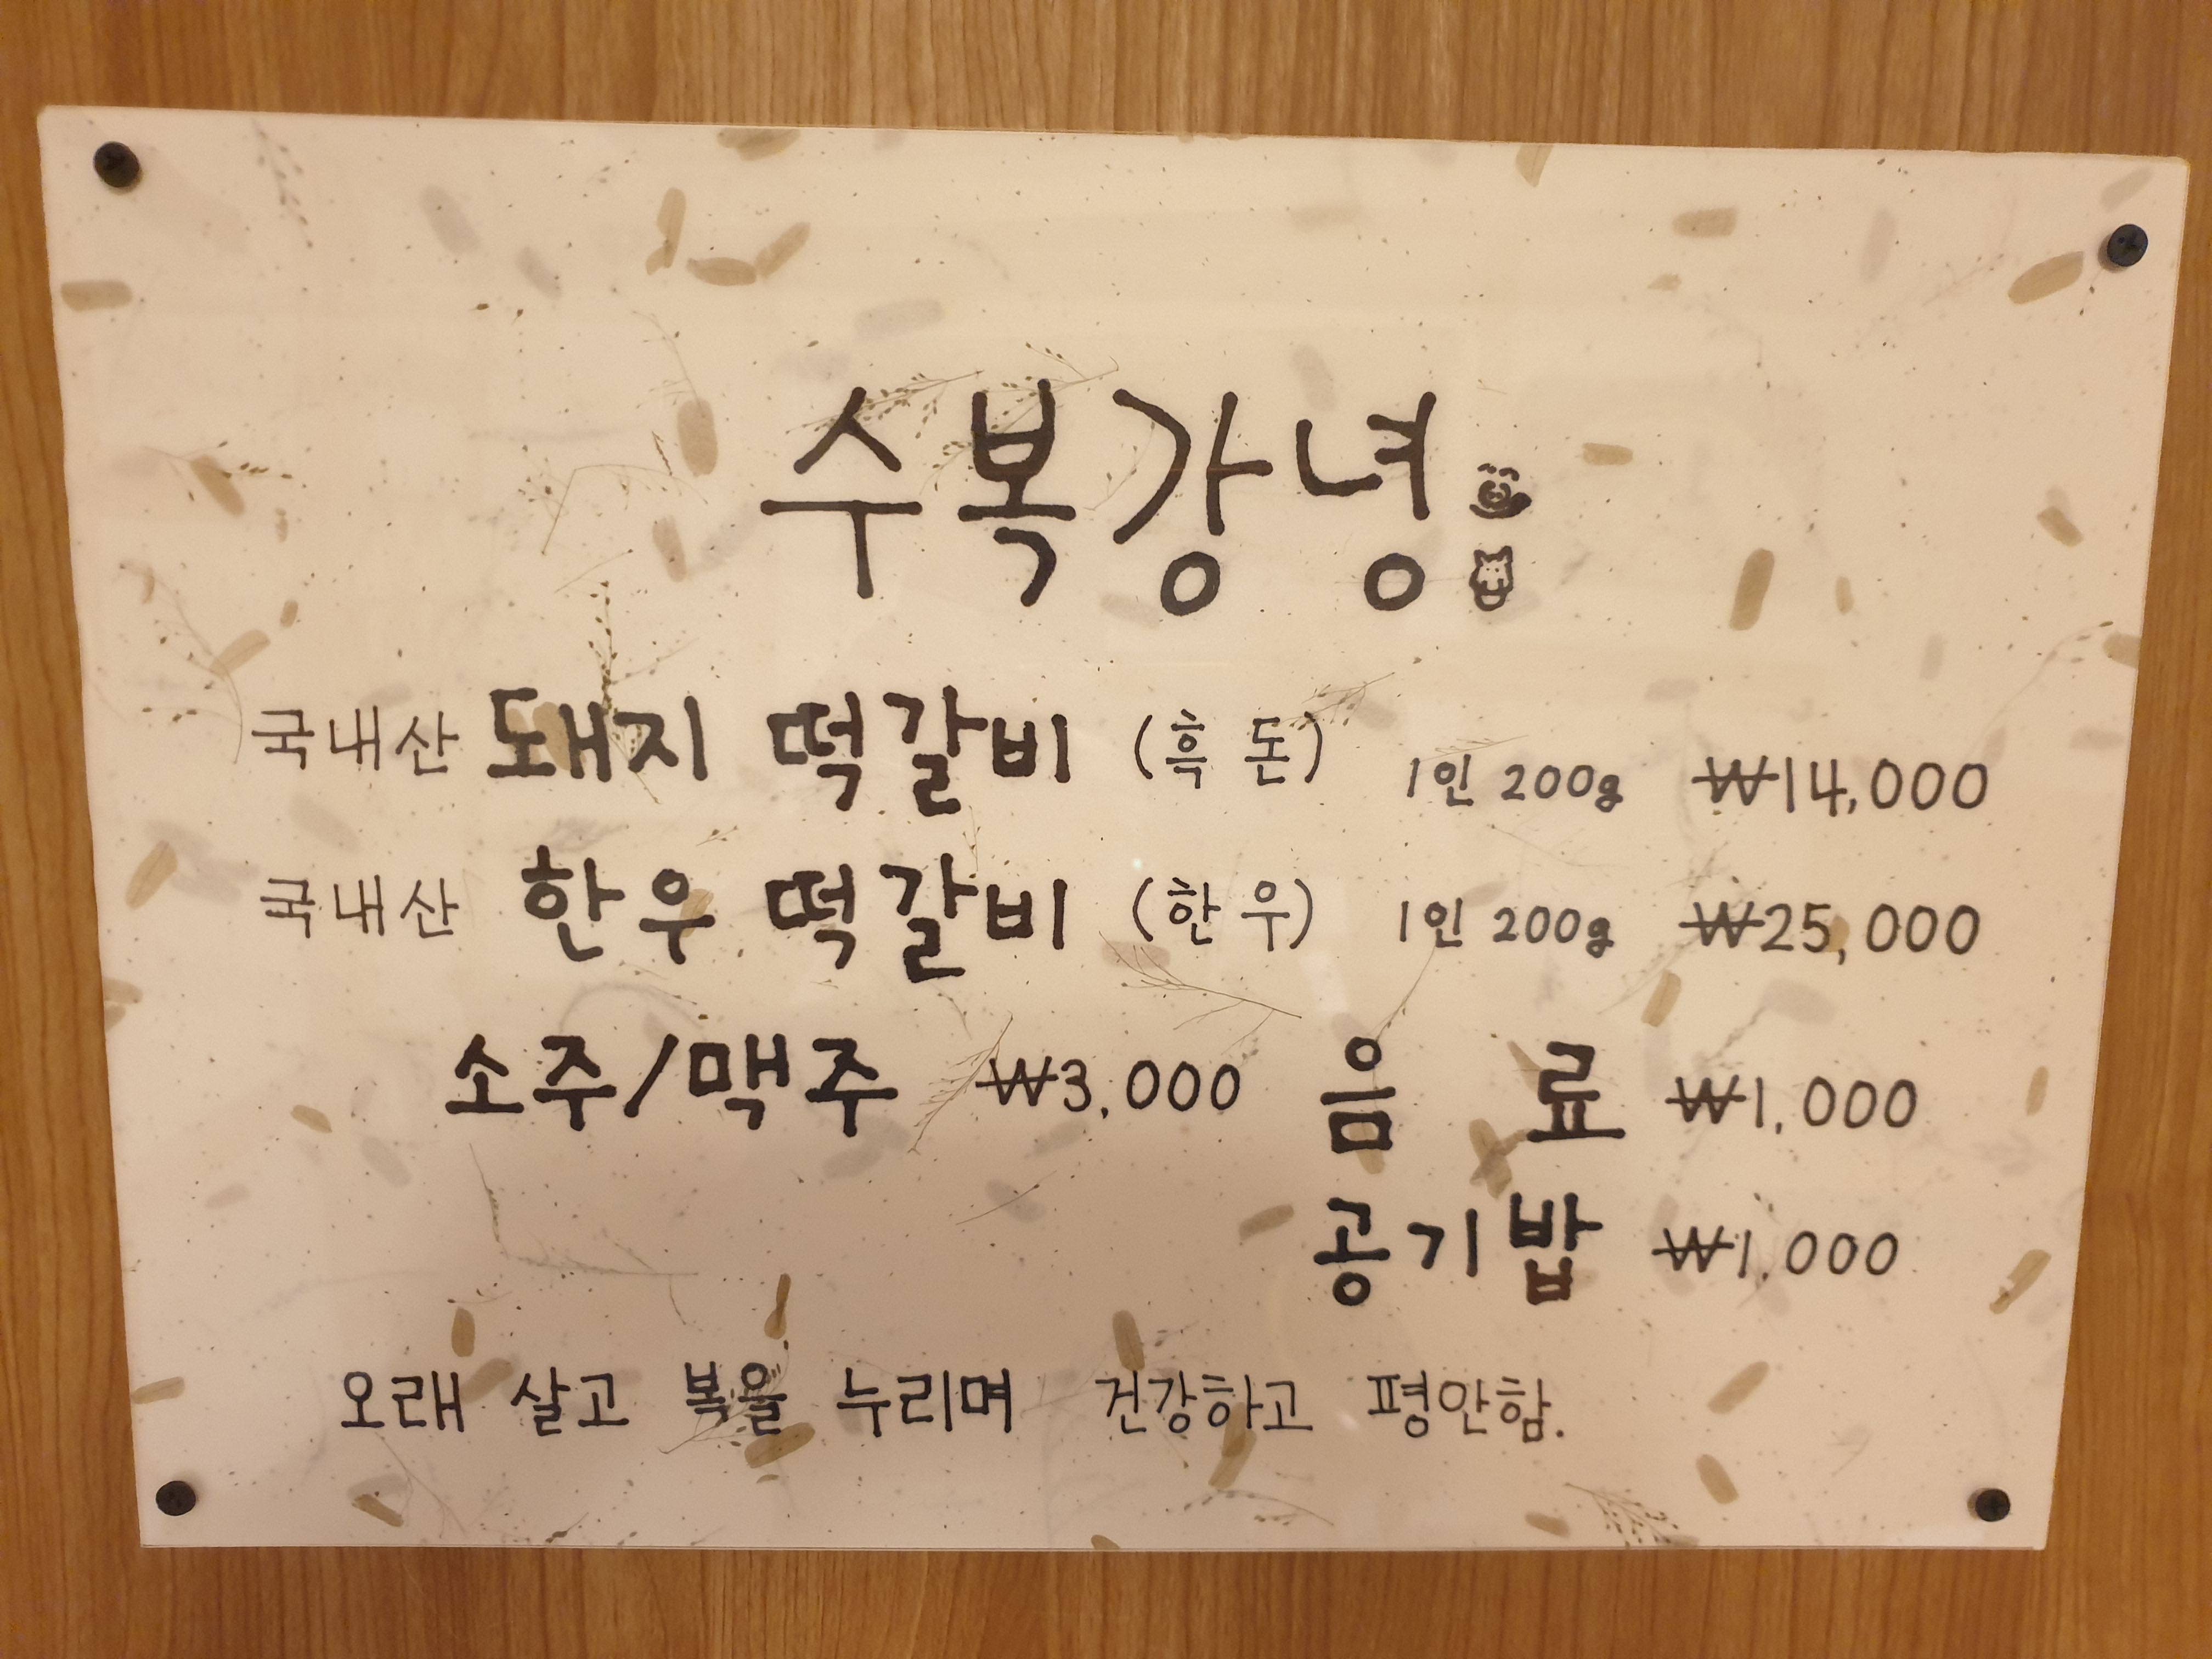 수복강녕
국내산 돼지 떡갈비 (흑돈) 1인 200g ₩14,000
국내산 한우 떡갈비 (한우) 1인 200g ₩25,000
소주/맥주 ₩3,000 음료 ₩1,000
공기밥 ₩1,000
오래 살고 복을 누리며 건강하고 평안함.